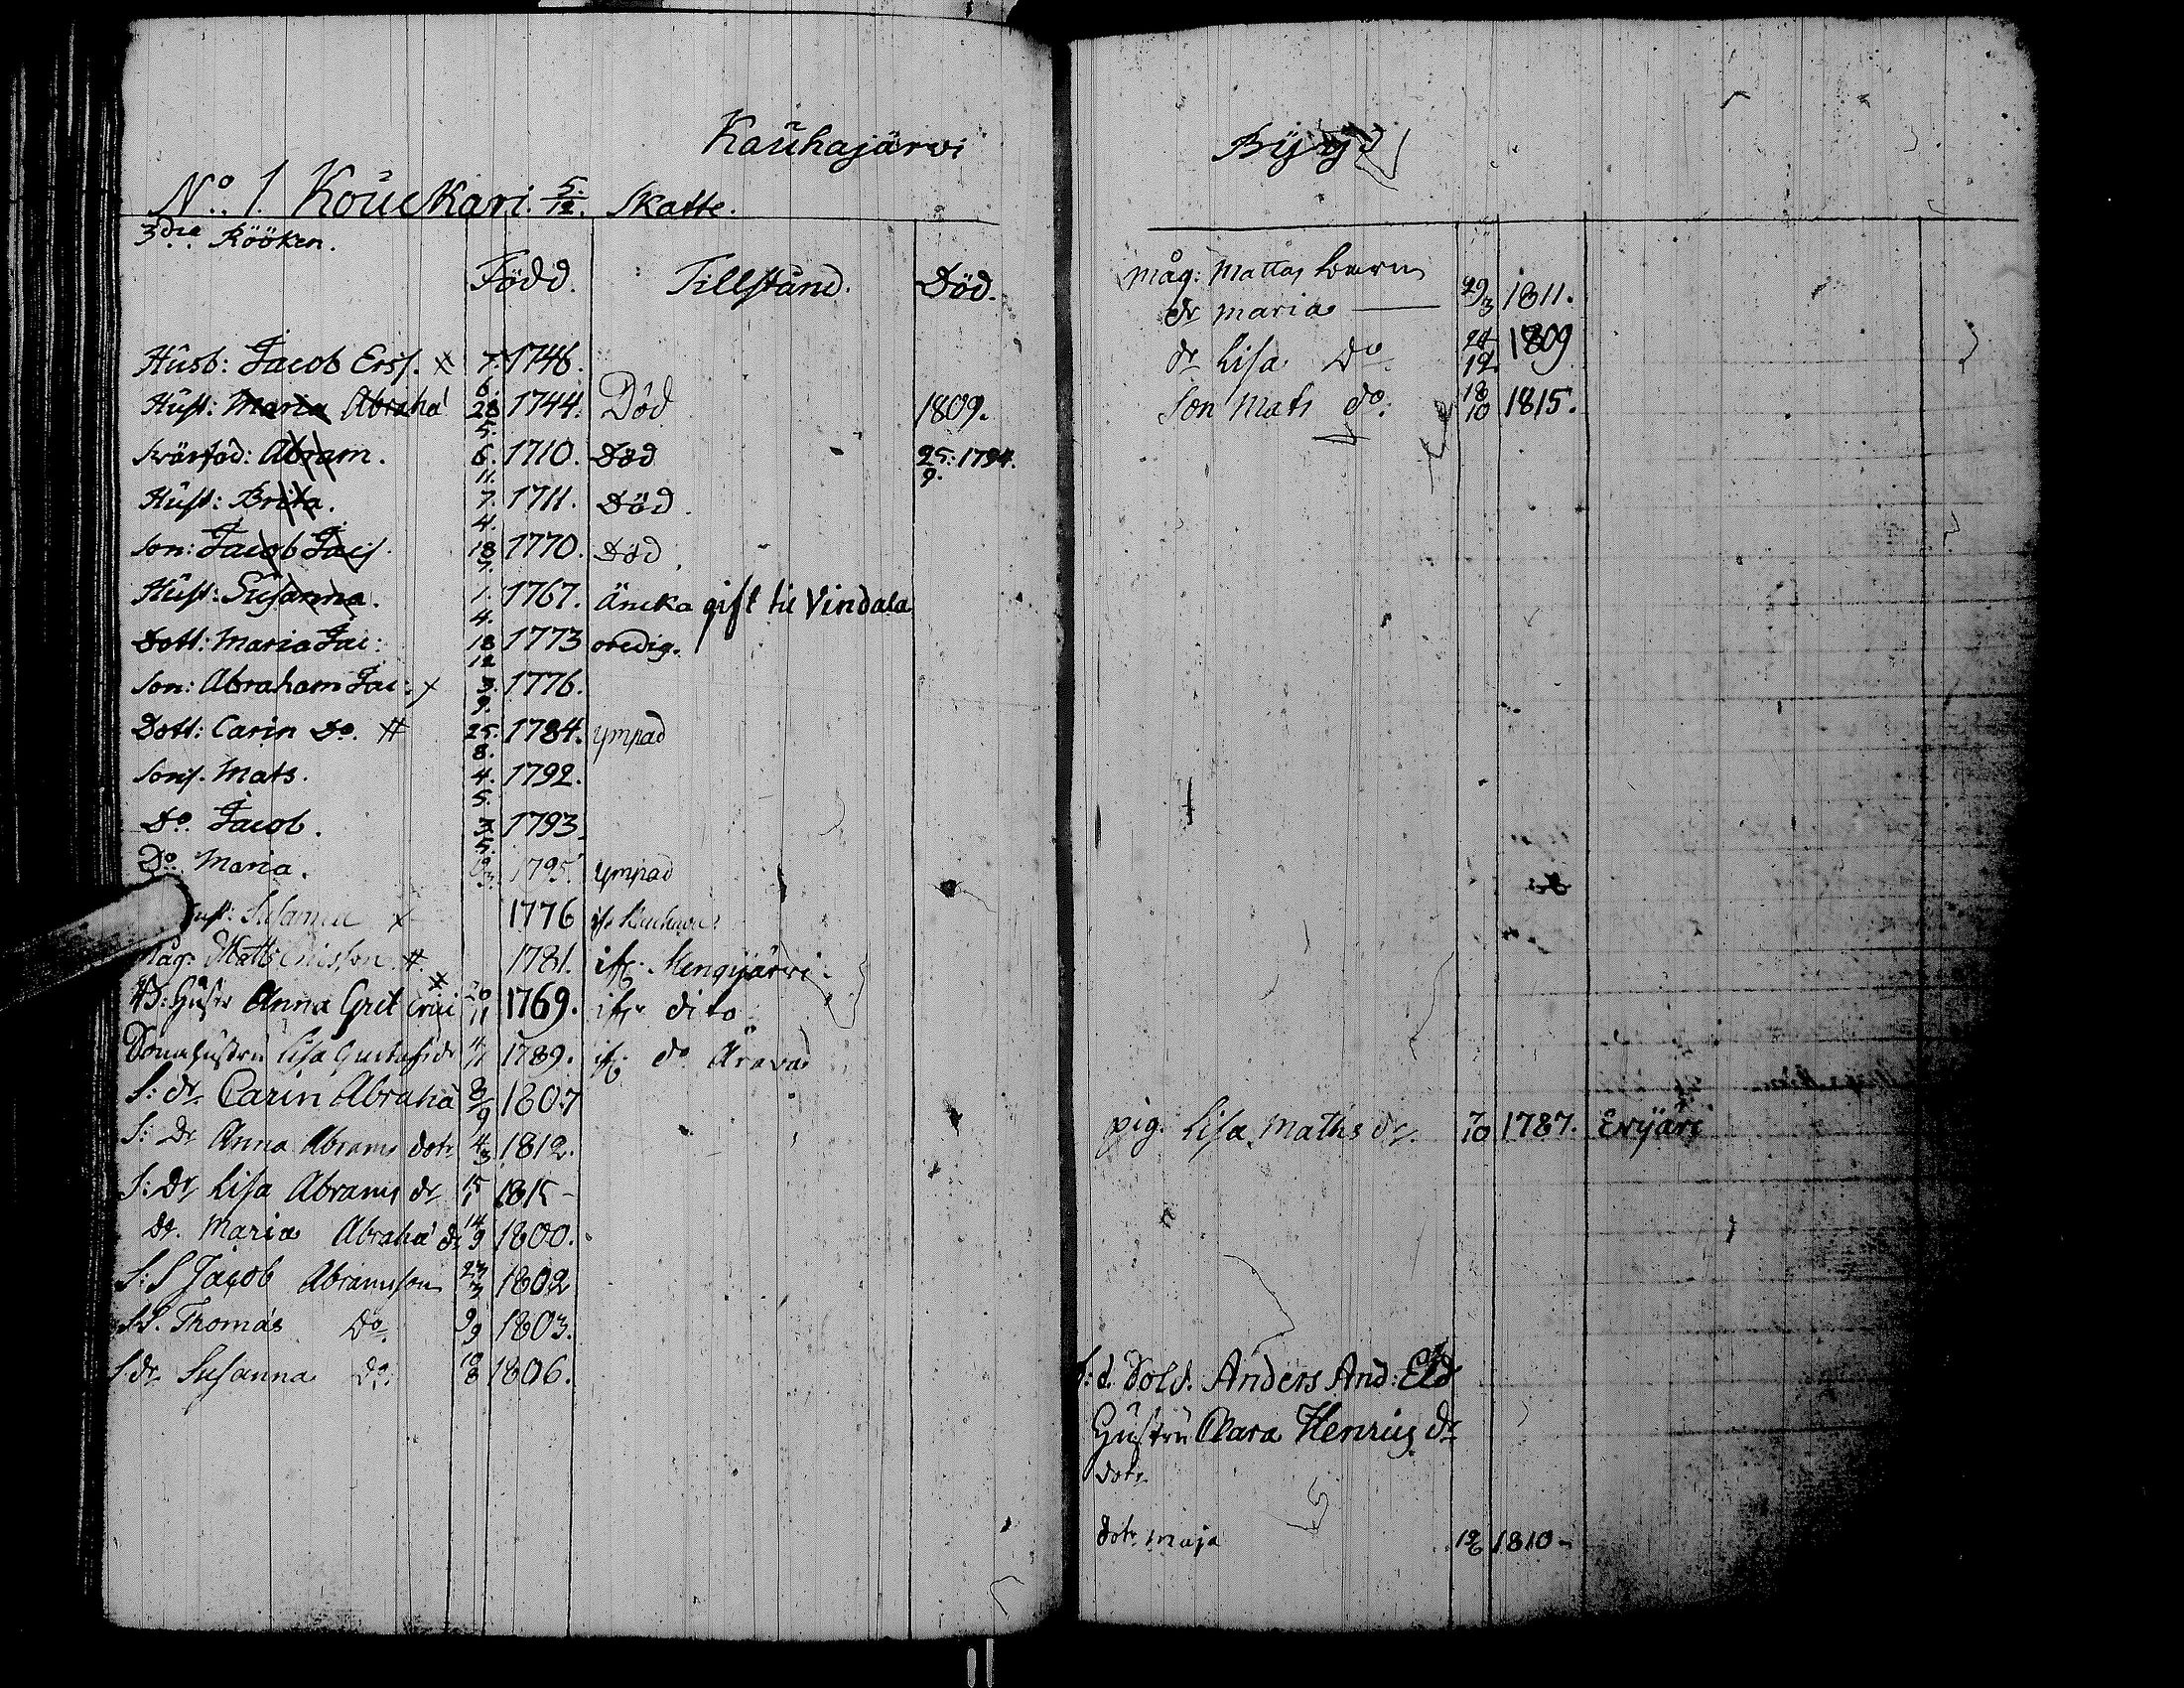 Kauhajärvi
No. 1. Kouckari. 5/12. Skatte.
3dra Rööken.
Född. Tillstånd. Död.
Husb: Jacob Ersf. x 7. 6. 1746.
Hust: Maria Abraha' 28 5. 1744. Död 1809.
Svärfad: Abram. 6. 11. 1710. Död 25. 9. 1794.
Hust: Brita. 7. 4. 1711. Död.
Son: Jacob Jacs. 18 7. 1770. Död.
Hust: Susanna. 1. 4. 1767. Äncka gift til Vindala
Dott: Maria Jac: 18 12 1773 oredig.
Son: Abraham Jac: x 3. 9. 1776.
Dott: Carin Do. # 25. 8. 1784. ympad
Sons. Mats. 4. 5. 1792.
Do. Jacob. 3. 5. 1793
Do. Maria. 19 3. 1795. ympad
Hust: Susanna x 1776
Måg: Matts Ericsson # 1781. ifr. Mengijärvi
Hustr Anna Gret Erici x 20 11 1769. ifr dito
Sonahustru Lisa Gustafsdr 4 11 1789. ifr do Äravad
S: dr Carin Abraha' 8 9 1807
S: Dr Anna Abrams dotr 4 3 1812.
S: Dr Lisa Abrams dr 15 1 1815 -
Dr. Maria Abraha' dr 14 9 1800.
S: S Jacob Abramsson 23 3 1802
S S. Thomas Do. 9 9 1803.
S dr Susanna Do. 10 8 1806.
Byygd
Måg: Mattas barn
dr maria — 29/3 1811.
dr Lisa Do 24 12 1809
Son Mats do. 18 10 1815.
pig. Lisa Mathsdr. 7 10 1787. Evijärf
f: d. Sold. Anders And: Eld
Hustru Clara Henrigs dr
dotr
dotr maja 12/6 1810 -